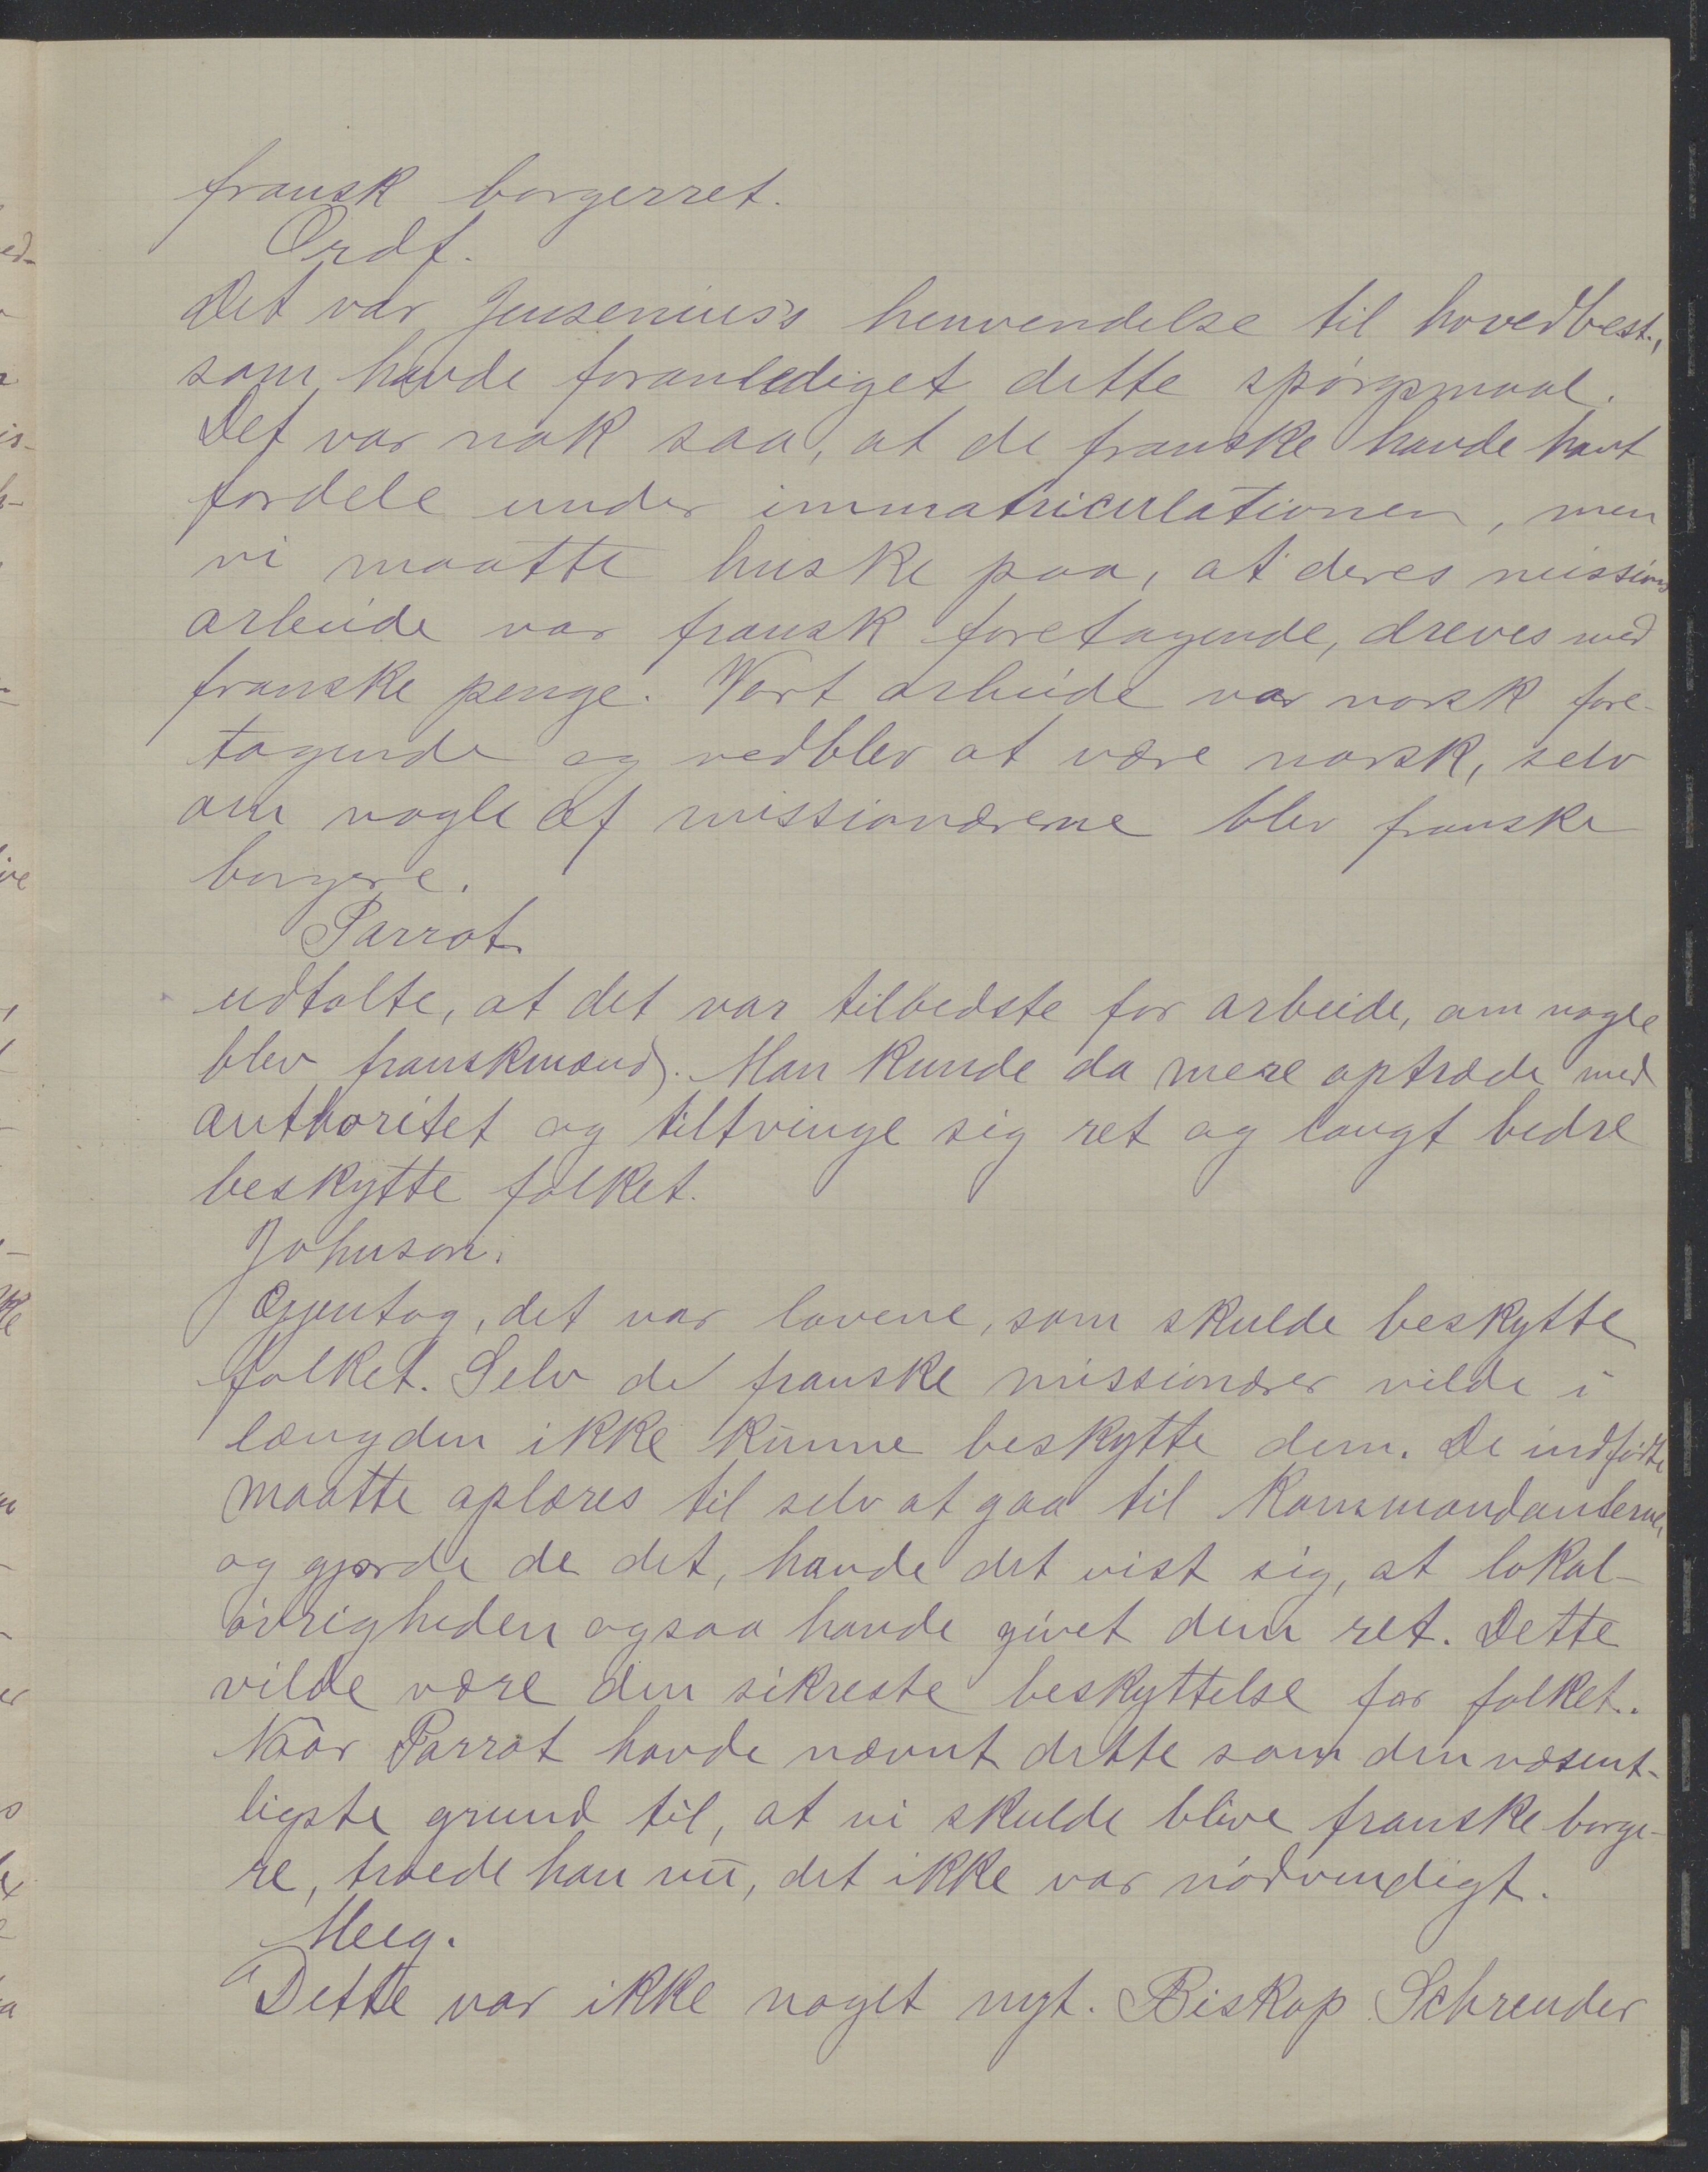 fransk borgerret.
Ordf.
Det var Jensenius's henvendelse til hovedbest.,
som havde foranlediget dette spørgsmaal.
Det var nok saa, at de franske havde havt
fordele under immatriculationen, men
vi maatte huske paa, at deres missions
arbeide var fransk foretagende, dreves med
franske penge. Vort arbeide var norsk fore-
tagende og vedblev at være norsk, selv
om nogle af missionærerne blev franske
borgere.
Parrot
udtalte, at det var tilbedste for arbeide, om nogle
blev franskmænd. Man kunde da mere optræde med
authoritet og tiltvinge sig ret og langt bedre
beskytte folket.
Johnson.
Gjentog, det var lovene, som skulde beskytte
folket. Selv de franske missionærer vilde i
længden ikke kunne beskytte dem. De indfødte
maatte oplæres til selv at gaa til Kommandanterne,
og gjorde de det, havde det vist sig, at lokal-
øvrigheden ogsaa havde givet dem ret. Dette
vilde være den sikreste beskyttelse for folket.
Naar Parrot havde nævnt dette som den væsent-
ligste grund til, at vi skulde blive franske borge-
re, troede han nu, det ikke var nødvendigt.
Meeg.
Dette var ikke noget nyt. Biskop Schreuder